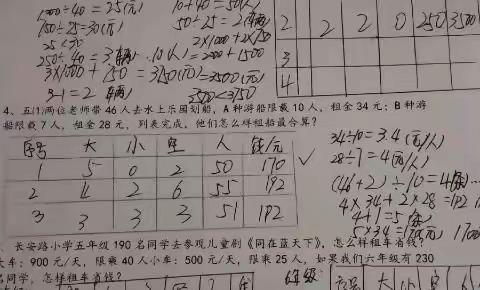 1000÷40=25(元)
10+40=50(人)
750÷25=30(元)
50÷25=2(辆)
25<30
2×1000+2×750
250÷40=3(辆)…10(人)
=2000+1500
3×1000+750=3750(元)
=3500(元)
3-1=2(辆)
3500<3750
2 2 2 0 250 3500
3
4
4、五(1)两位老师带46人去水上乐园划船，A种游船限载10人，租金34元；B种游
船限载7人，租金28元，列表完成，他们怎么样租船最合算？
序号 大 小 空 人 钱/元
1 5 0 2 50 170 ✓
2 4 2 6 55 192
3 3 3 3 51 192
34÷10=3.4(元/人)
28÷7=4(元/人)
(46+2)÷10=4(条)…
4×34+2×28=192
4+1=5(条)
5×34=170(元) 170
长安路小学五年级190名同学去参观儿童剧《同在蓝天下》，怎么样租车省钱？
大车：900元/天，限乘40人小车：500元/天，限乘25人，如果我们六年级有230
名同学，怎样租车省钱？
年级
序号 大 小